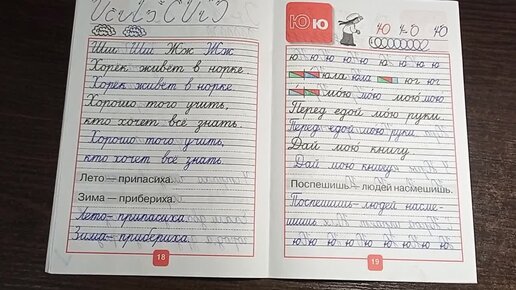 Шш Шш Жж Жж
Хорёк живёт в норке.
Хорёк живёт в норке.
Хорошо того учить,
кто хочет всё знать.
Хорошо того учить,
кто хочет всё знать.
Лето — припасиха.
Зима — прибериха.
Лето — припасиха.
Зима — прибериха.
18
Ю ю
ю ю ю ю ю ю ю ю
юла юла юг юг
мою мою мою мою
Перед едой мою руки
Перед едой мою руки
Дай мою книгу
Дай мою книгу
Поспешишь — людей насмешишь.
Поспешишь — людей насме-
шишь.
ю ю ю ю ю ю ю ю
19